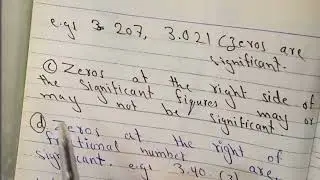 e.g; 3.207, 3.021 (Zeros are
significant.
(c) Zeros at the right side of
the significant figures may or
may not be significant.
(d) Zeros at the right of
fractional number are
significant. e.g; 3.40 (3)